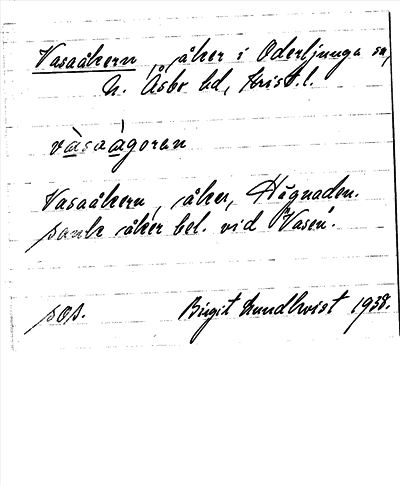 Vasaåkern, åker i Oderljunga sn,
N. Åsbo hd, Krist. l.
vàsaàgoran
Vasaåkern, åker, Hägnaden.
sank åker bel. vid "Vasen".
sos. Birgit Lundkvist 1938.